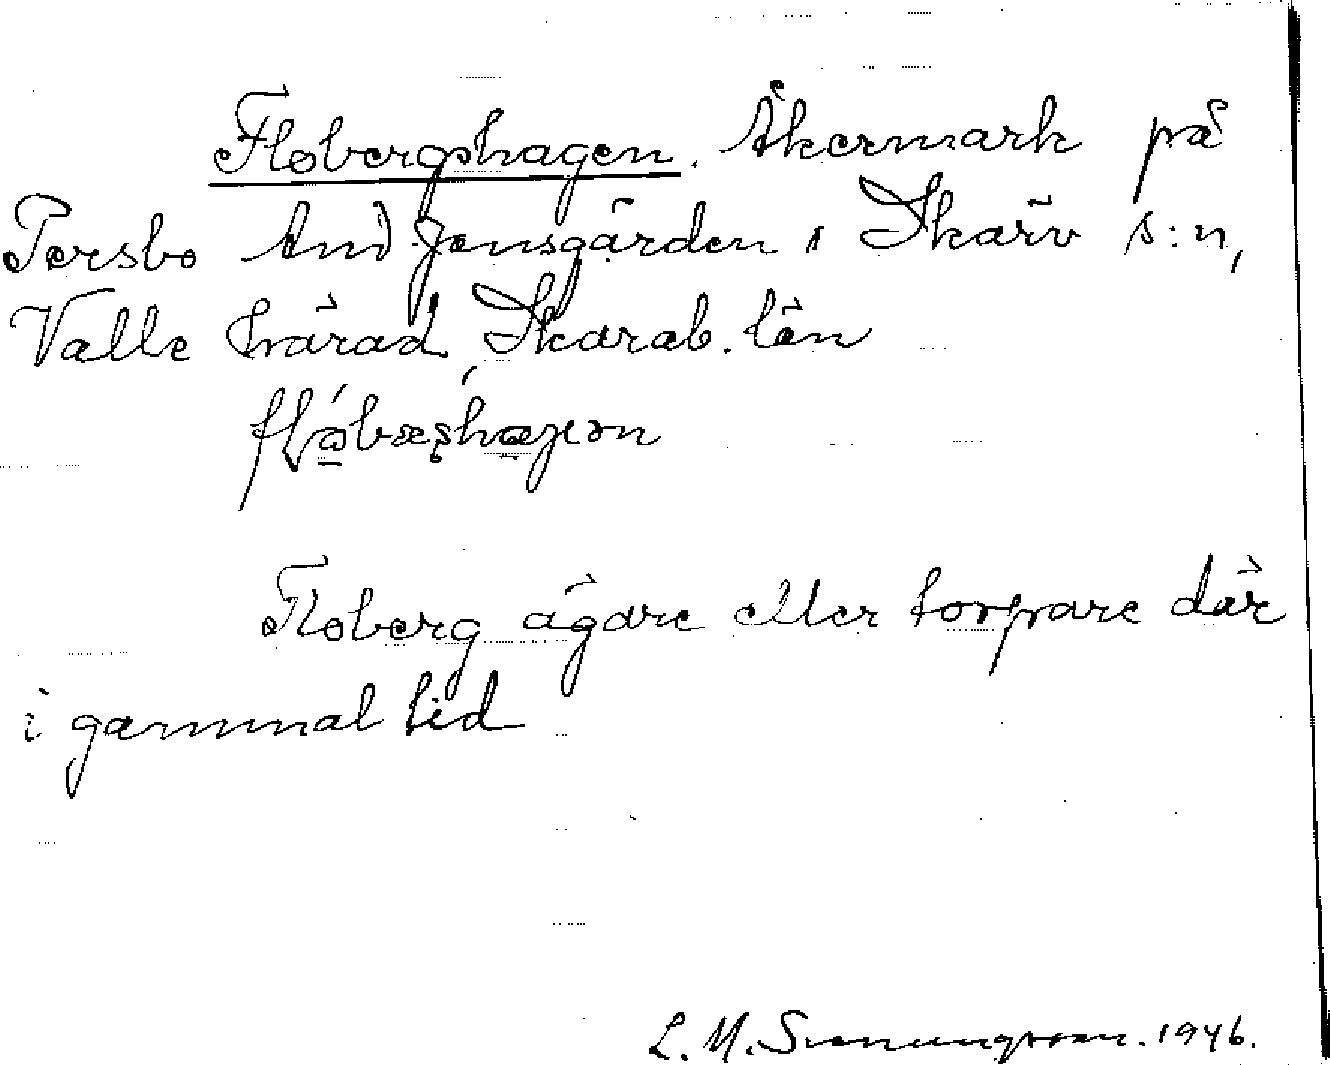 Flobergshagen. Åkermark på
Persbo And. Jonsgården i Skärv s:n,
Valle härad, Skarab. län
Floberg ägare eller torpare där
i gammal tid
L. M. Svenungsson. 1946.